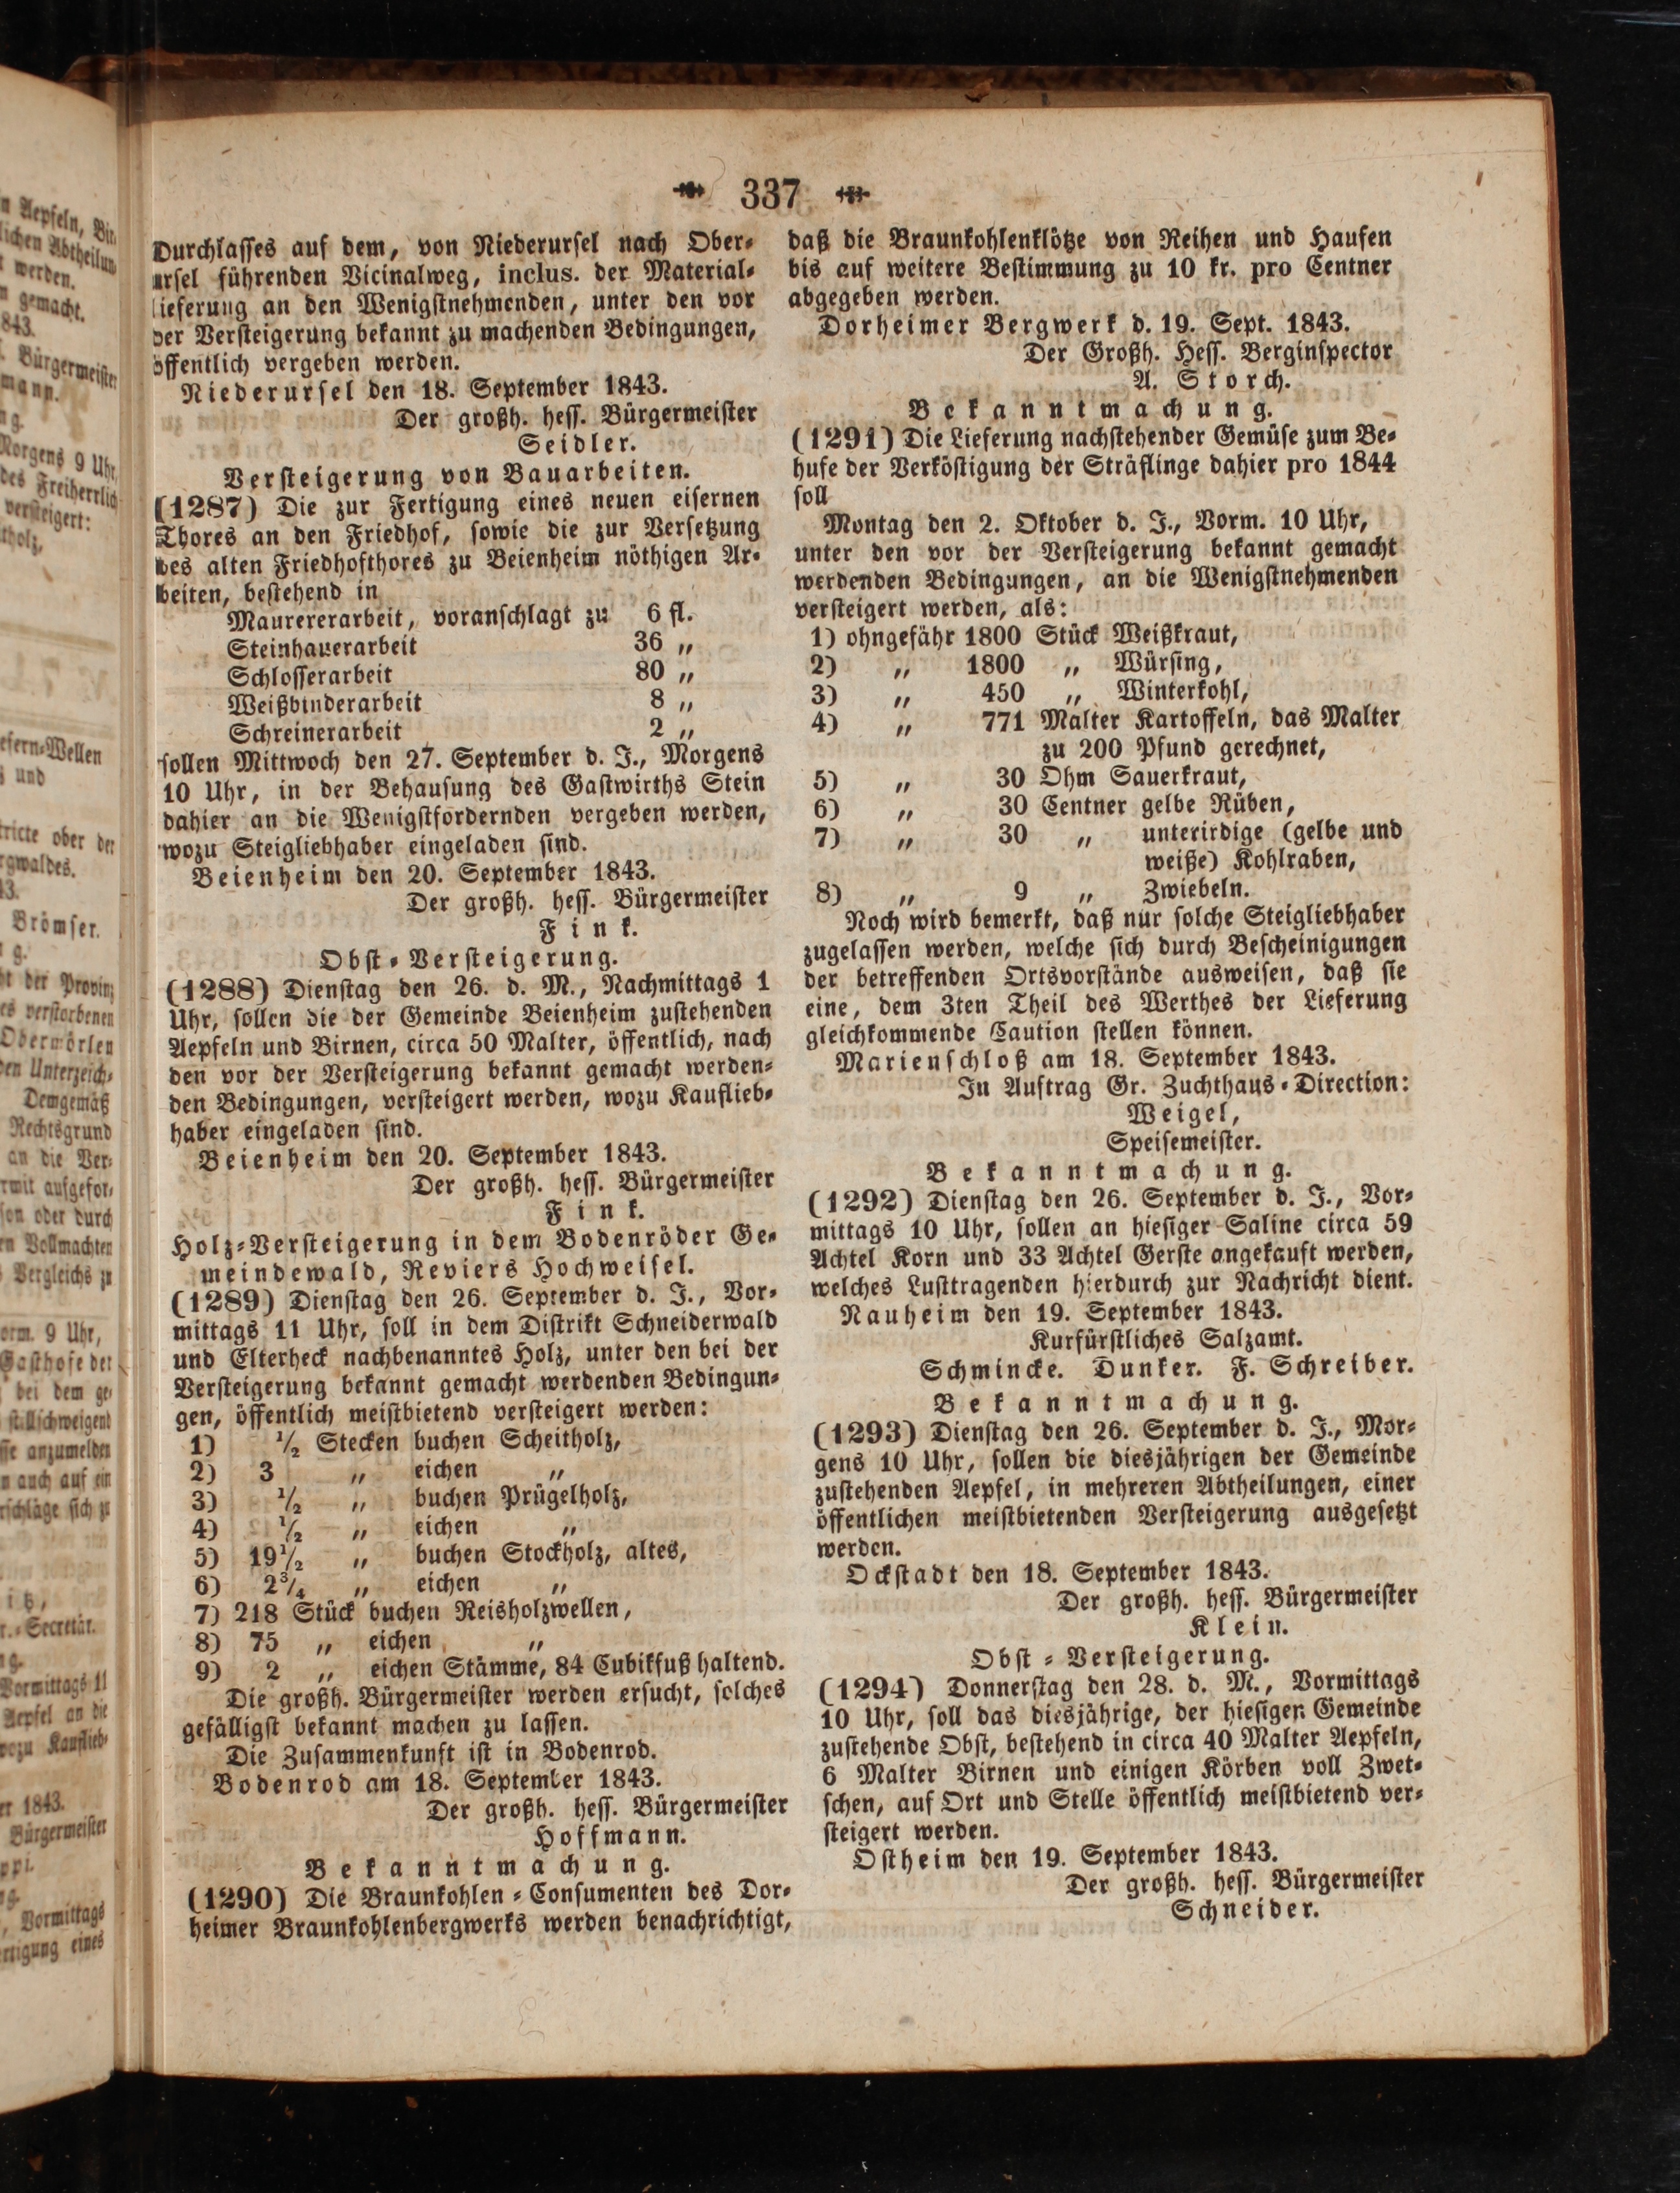 337
Durchlasses auf dem, von Niederursel nach Ober-
ursel führenden Vicinalweg, inclus. der Material-
lieferung an den Wenigstnehmenden, unter den vor
der Versteigerung bekannt zu machenden Bedingungen,
öffentlich vergeben werden.
Niederursel den 18. September 1843.
Der großh. hess. Bürgermeister
Seidler.
Versteigerung von Bauarbeiten.
(1287) Die zur Fertigung eines neuen eisernen
Thores an den Friedhof, sowie die zur Versetzung
des alten Friedhofthores zu Beienheim nöthigen Ar-
beiten, bestehend in
Maurererarbeit, voranschlagt zu 6 fl.
Steinhauerarbeit 36 „
Schlosserarbeit 80 „
Weißbinderarbeit 8 „
Schreinerarbeit 2 „
sollen Mittwoch den 27. September d. J., Morgens
10 Uhr, in der Behausung des Gastwirths Stein
dahier an die Wenigstfordernden vergeben werden,
wozu Steigliebhaber eingeladen sind.
Beienheim den 20. September 1843.
Der großh. hess. Bürgermeister
Fink.
Obst-Versteigerung.
(1288) Dienstag den 26. d. M., Nachmittags 1
Uhr, sollen die der Gemeinde Beienheim zustehenden
Aepfeln und Birnen, circa 50 Malter, öffentlich, nach
den vor der Versteigerung bekannt gemacht werden-
den Bedingungen, versteigert werden, wozu Kauflieb-
haber eingeladen sind.
Beienheim den 20. September 1843.
Der großh. hess. Bürgermeister
Fink.
Holz-Versteigerung in dem Bodenröder Ge-
meindewald, Reviers Hochweisel.
(1289) Dienstag den 26. September d. J., Vor-
mittags 11 Uhr, soll in dem Distrikt Schneiderwald
und Elterheck nachbenanntes Holz, unter den bei der
Versteigerung bekannt gemacht werdenden Bedingun-
gen, öffentlich meistbietend versteigert werden:
1) ½ Stecken buchen Scheitholz,
2) 3 „ eichen „
3) ½ „ buchen Prügelholz,
4) ½ „ eichen „
5) 19½ „ buchen Stockholz, altes,
6) 2¾ „ eichen „
7) 218 Stück buchen Reisholzwellen,
8) 75 „ eichen „
9) 2 „ eichen Stämme, 84 Cubikfuß haltend.
Die großh. Bürgermeister werden ersucht, solches
gefälligst bekannt machen zu lassen.
Die Zusammenkunft ist in Bodenrod.
Bodenrod am 18. September 1843.
Der großh. hess. Bürgermeister
Hoffmann.
Bekanntmachung.
(1290) Die Braunkohlen-Consumenten des Dor-
heimer Braunkohlenbergwerks werden benachrichtigt,
daß die Braunkohlenklötze von Reihen und Haufen
bis auf weitere Bestimmung zu 10 kr. pro Centner
abgegeben werden.
Dorheimer Bergwerk d. 19. Sept. 1843.
Der Großh. Hess. Berginspector
A. Storch.
Bekanntmachung.
(1291) Die Lieferung nachstehender Gemüse zum Be-
hufe der Verköstigung der Sträflinge dahier pro 1844
soll
Montag den 2. Oktober d. J., Vorm. 10 Uhr,
unter den vor der Versteigerung bekannt gemacht
werdenden Bedingungen, an die Wenigstnehmenden
versteigert werden, als:
1) ohngefähr 1800 Stück Weißkraut,
2) „ 1800 „ Würsing,
3) „ 450 „ Winterkohl,
4) „ 771 Malter Kartoffeln, das Malter
zu 200 Pfund gerechnet,
5) „ 30 Ohm Sauerkraut,
6) „ 30 Centner gelbe Rüben,
7) „ 30 „ unterirdige (gelbe und
weiße) Kohlraben,
8) „ 9 „ Zwiebeln.
Noch wird bemerkt, daß nur solche Steigliebhaber
zugelassen werden, welche sich durch Bescheinigungen
der betreffenden Ortsvorstände ausweisen, daß sie
eine, dem 3ten Theil des Werthes der Lieferung
gleichkommende Caution stellen können.
Marienschloß am 18. September 1843.
In Auftrag Gr. Zuchthaus-Direction:
Weigel,
Speisemeister.
Bekanntmachung.
(1292) Dienstag den 26. September d. J., Vor-
mittags 10 Uhr, sollen an hiesiger Saline circa 59
Achtel Korn und 33 Achtel Gerste angekauft werden,
welches Lusttragenden hierdurch zur Nachricht dient.
Nauheim den 19. September 1843.
Kurfürstliches Salzamt.
Schmincke. Dunker. F. Schreiber.
Bekanntmachung.
(1293) Dienstag den 26. September d. J., Mor-
gens 10 Uhr, sollen die diesjährigen der Gemeinde
zustehenden Aepfel, in mehreren Abtheilungen, einer
öffentlichen meistbietenden Versteigerung ausgesetzt
werden.
Ockstadt den 18. September 1843.
Der großh. hess. Bürgermeister
Klein.
Obst-Versteigerung.
(1294) Donnerstag den 28. d. M., Vormittags
10 Uhr, soll das diesjährige, der hiesigen Gemeinde
zustehende Obst, bestehend in circa 40 Malter Aepfeln,
6 Malter Birnen und einigen Körben voll Zwet-
schen, auf Ort und Stelle öffentlich meistbietend ver-
steigert werden.
Ostheim den 19. September 1843.
Der großh. hess. Bürgermeister
Schneider.